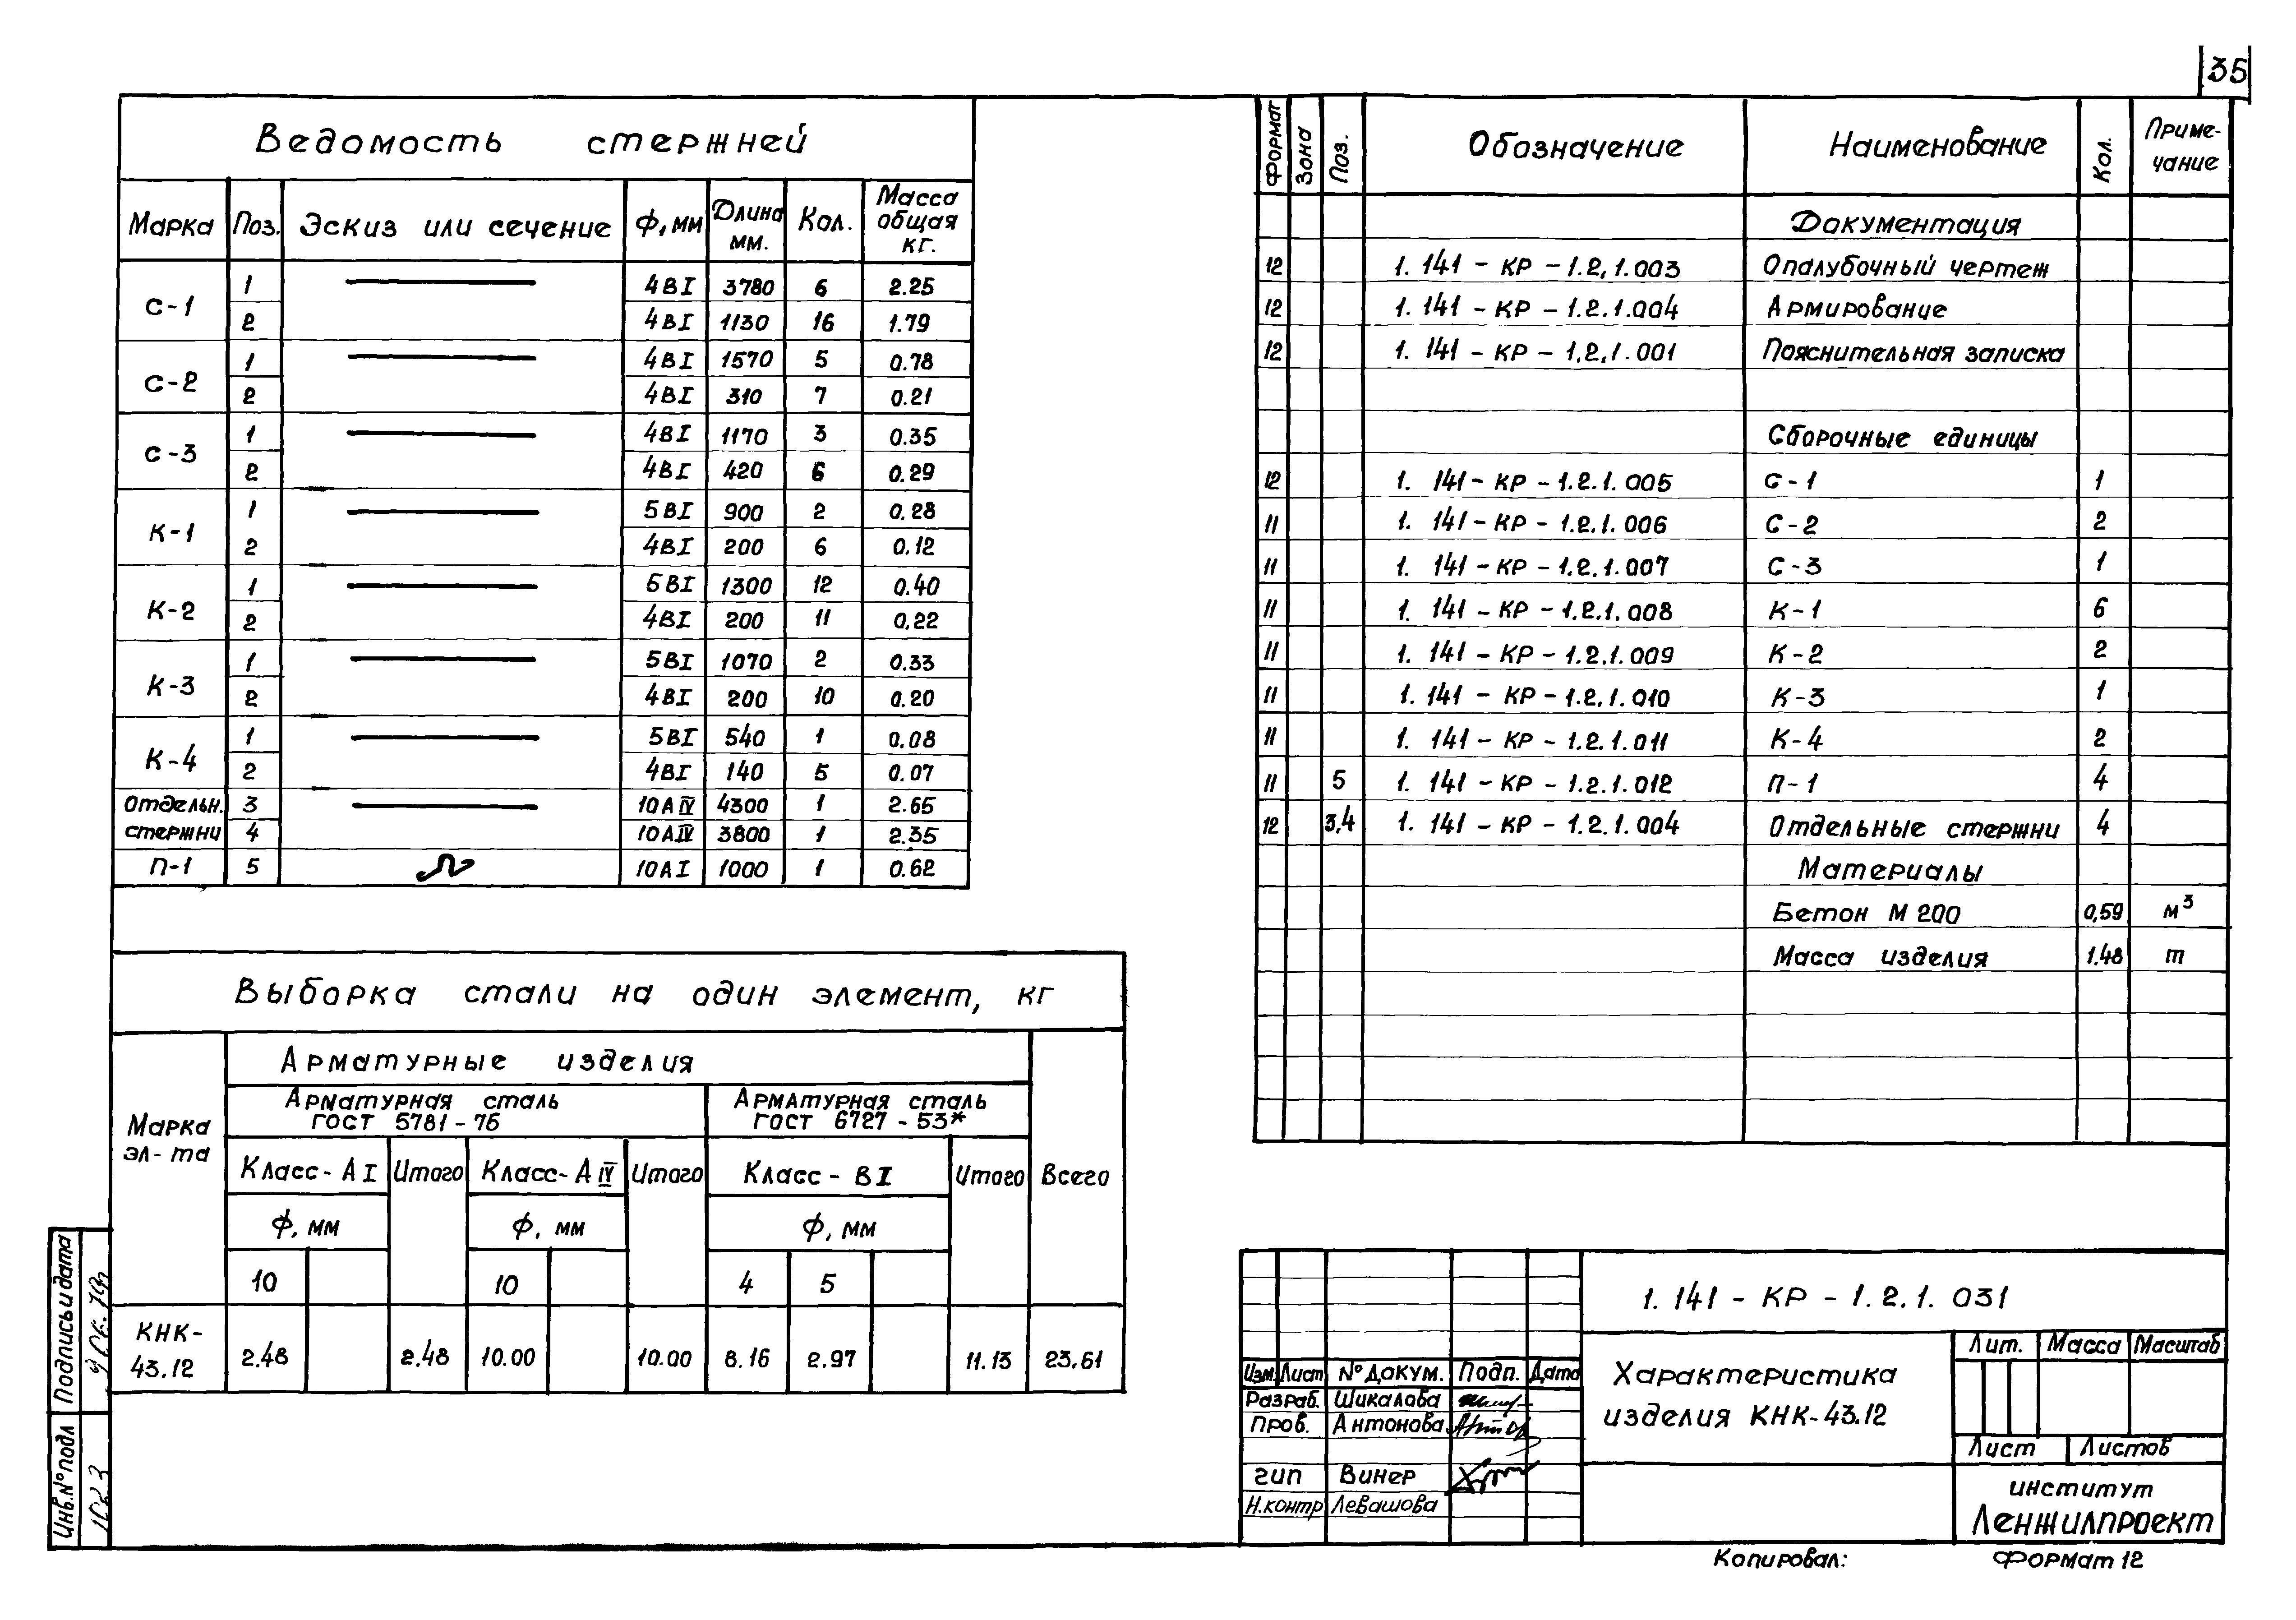 35
Ведомость стержней
Марка Поз. Эскиз или сечение Ф, мм Длина мм. Кол. Масса общая кг.
С-1 1 4ВI 3780 6 2.25
2 4ВI 1130 16 1.79
С-2 1 4ВI 1570 5 0.78
2 4ВI 310 7 0.21
С-3 1 4ВI 1170 3 0.35
2 4ВI 420 6 0.29
К-1 1 5ВI 900 2 0.28
2 4ВI 200 6 0.12
К-2 1 5ВI 1300 12 0.40
2 4ВI 200 11 0.22
К-3 1 5ВI 1070 2 0.33
2 4ВI 200 10 0.20
К-4 1 5ВI 540 1 0.08
2 4ВI 140 5 0.07
Отдельн. 3 10АIV 4300 1 2.65
стержни 4 10АIV 3800 1 2.35
П-1 5 10АI 1000 1 0.62
Выборка стали на один элемент, кг
Марка эл-та
Арматурные изделия
Арматурная сталь ГОСТ 5781-75
Арматурная сталь ГОСТ 6727-53*
Класс-АI Итого Класс-АIV Итого Класс-ВI Итого Всего
Ф, мм Ф, мм Ф, мм
10 10 4 5
КНК-43.12 2.48 2.48 10.00 10.00 8.16 2.97 11.13 23.61
Формат Зона Поз. Обозначение Наименование Кол. Примечание
Документация
12 1. 141-КР-1.2.1.003 Опалубочный чертеж
12 1. 141-КР-1.2.1.004 Армирование
12 1. 141-КР-1.2.1.001 Пояснительная записка
Сборочные единицы
12 1. 141-КР-1.2.1.005 С-1 1
11 1. 141-КР-1.2.1.006 С-2 2
11 1. 141-КР-1.2.1.007 С-3 1
11 1. 141-КР-1.2.1.008 К-1 6
11 1. 141-КР-1.2.1.009 К-2 2
11 1. 141-КР-1.2.1.010 К-3 1
11 1. 141-КР-1.2.1.011 К-4 2
11 5 1. 141-КР-1.2.1.012 П-1 4
12 3,4 1. 141-КР-1.2.1.004 Отдельные стержни 4
Материалы
Бетон М 200 0,59 м³
Масса изделия 1.48 т
1. 141-КР-1.2.1. 031
Изм. Лист № докум. Подп. Дата
Разраб. Шикалова
Пров. Антонова
ГИП Винер
Н.контр Левашова
Характеристика
изделия КНК-43.12
Лит. Масса Масштаб
Лист Листов
институт
Ленжилпроект
Копировал: Формат 12
Подпись и дата
Инв.№ подл